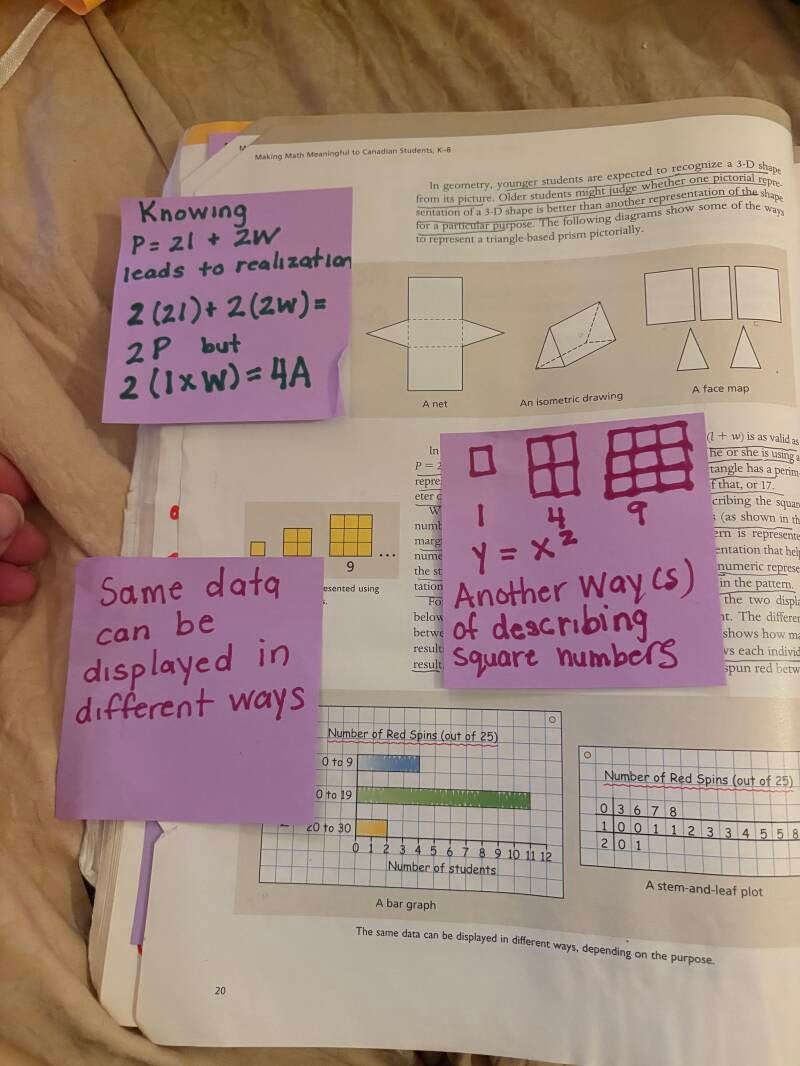 Making Math Meaningful to Canadian Students, K–8
In geometry, younger students are expected to recognize a 3-D shape
from its picture. Older students might judge whether one pictorial repre-
sentation of a 3-D shape is better than another representation of the shape
for a particular purpose. The following diagrams show some of the ways
to represent a triangle-based prism pictorially.
Knowing
P = 2l + 2w
leads to realization
2(2l) + 2(2w) =
2P but
2(l x w) = 4A
A net
An isometric drawing
A face map
In
P = 2
repre
eter
W
num
marg
nume
the st
tation
Fo
below
betwe
result
result
(l + w) is as valid as
he or she is using a
tangle has a perim-
f that, or 17.
cribing the squar
(as shown in th
ern is represente
entation that help
numeric represe
in the pattern.
the two displa
nt. The differen
shows how ma
ws each individ
spun red betw
1 4 9
y = x²
Another way(s)
of describing
square numbers
9
...
esented using
s.
Same data
can be
displayed in
different ways
Number of Red Spins (out of 25)
0 to 9
0 to 19
20 to 30
0 1 2 3 4 5 6 7 8 9 10 11 12
Number of students
A bar graph
Number of Red Spins (out of 25)
0 3 6 7 8
1 0 0 1 1 2 3 3 4 5 5 8
2 0 1
A stem-and-leaf plot
The same data can be displayed in different ways, depending on the purpose.
20